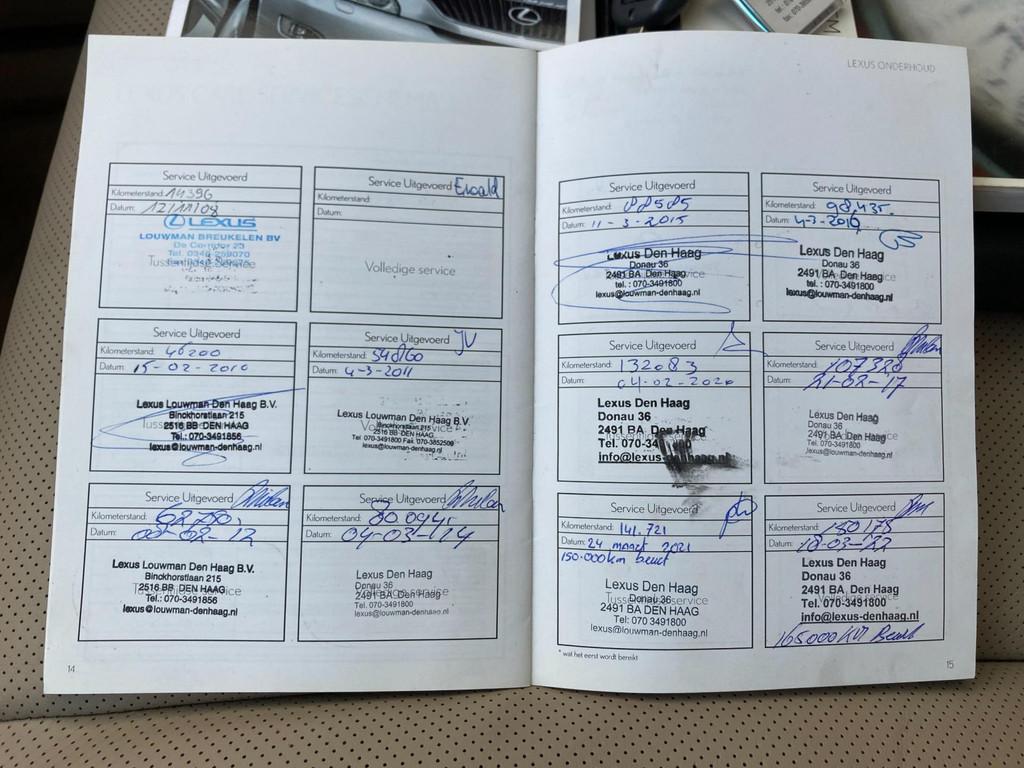 LEXUS ONDERHOUD
Service Uitgevoerd
Kilometerstand: 14396
Datum: 12/11/08
LEXUS
LOUWMAN BREUKELEN BV
De Corridor 23
Tel. 0346-259070
Tussentijdse service
Service Uitgevoerd Ewald
Kilometerstand:
Datum:
Volledige service
Service Uitgevoerd
Kilometerstand: 46200
Datum: 15-02-2010
Lexus Louwman Den Haag B.V.
Binckhorstlaan 215
2516 BB DEN HAAG
Tel.: 070-3491856
lexus@louwman-denhaag.nl
Service Uitgevoerd
Kilometerstand: 54860
Datum: 4-3-2011
Lexus Louwman Den Haag B.V.
Binckhorstlaan 215
2516 BB DEN HAAG
Tel. 070-3491800 Fax. 070-3852509
lexus@louwman-denhaag.nl
Service Uitgevoerd
Kilometerstand: 68750,
Datum: 02-12
Lexus Louwman Den Haag B.V.
Binckhorstlaan 215
2516 BB DEN HAAG
Tel.: 070-3491856
lexus@louwman-denhaag.nl
Service Uitgevoerd
Kilometerstand: 80094,
Datum: 04-03-14
Lexus Den Haag
Donau 36
2491 BA DEN HAAG
Tel. 070-3491800
lexus@louwman-denhaag.nl
14
Service Uitgevoerd
Kilometerstand: 88585
Datum: 11-3-2015
Lexus Den Haag
Donau 36
2491 BA Den Haag
tel. : 070-3491800
lexus@louwman-denhaag.nl
Service Uitgevoerd
Kilometerstand: 98.435.
Datum: 4-3-2016
Lexus Den Haag
Donau 36
2491 BA Den Haag
tel. : 070-3491800
lexus@louwman-denhaag.nl
Service Uitgevoerd
Kilometerstand: 132083
Datum: 04-02-2020
Lexus Den Haag
Donau 36
2491 BA Den Haag
Tel. 070-34
info@lexus-denhaag.nl
Service Uitgevoerd
Kilometerstand: 107328
Datum: 21-02-'17
Lexus Den Haag
Donau 36
2491 BA DEN HAAG
Tel. 070-3491800
lexus@louwman-denhaag.nl
Service Uitgevoerd
Kilometerstand: 141.721
Datum: 24 maart 2021
150.000km beurt
Lexus Den Haag
Donau 36
2491 BA DEN HAAG
Tel. 070 3491800
lexus@louwman-denhaag.nl
Service Uitgevoerd
Kilometerstand: 150175
Datum: 18-03-'22
Lexus Den Haag
Donau 36
2491 BA Den Haag
Tel. 070-3491800
info@lexus-denhaag.nl
165000KM Beurt
* wat het eerst wordt bereikt
15